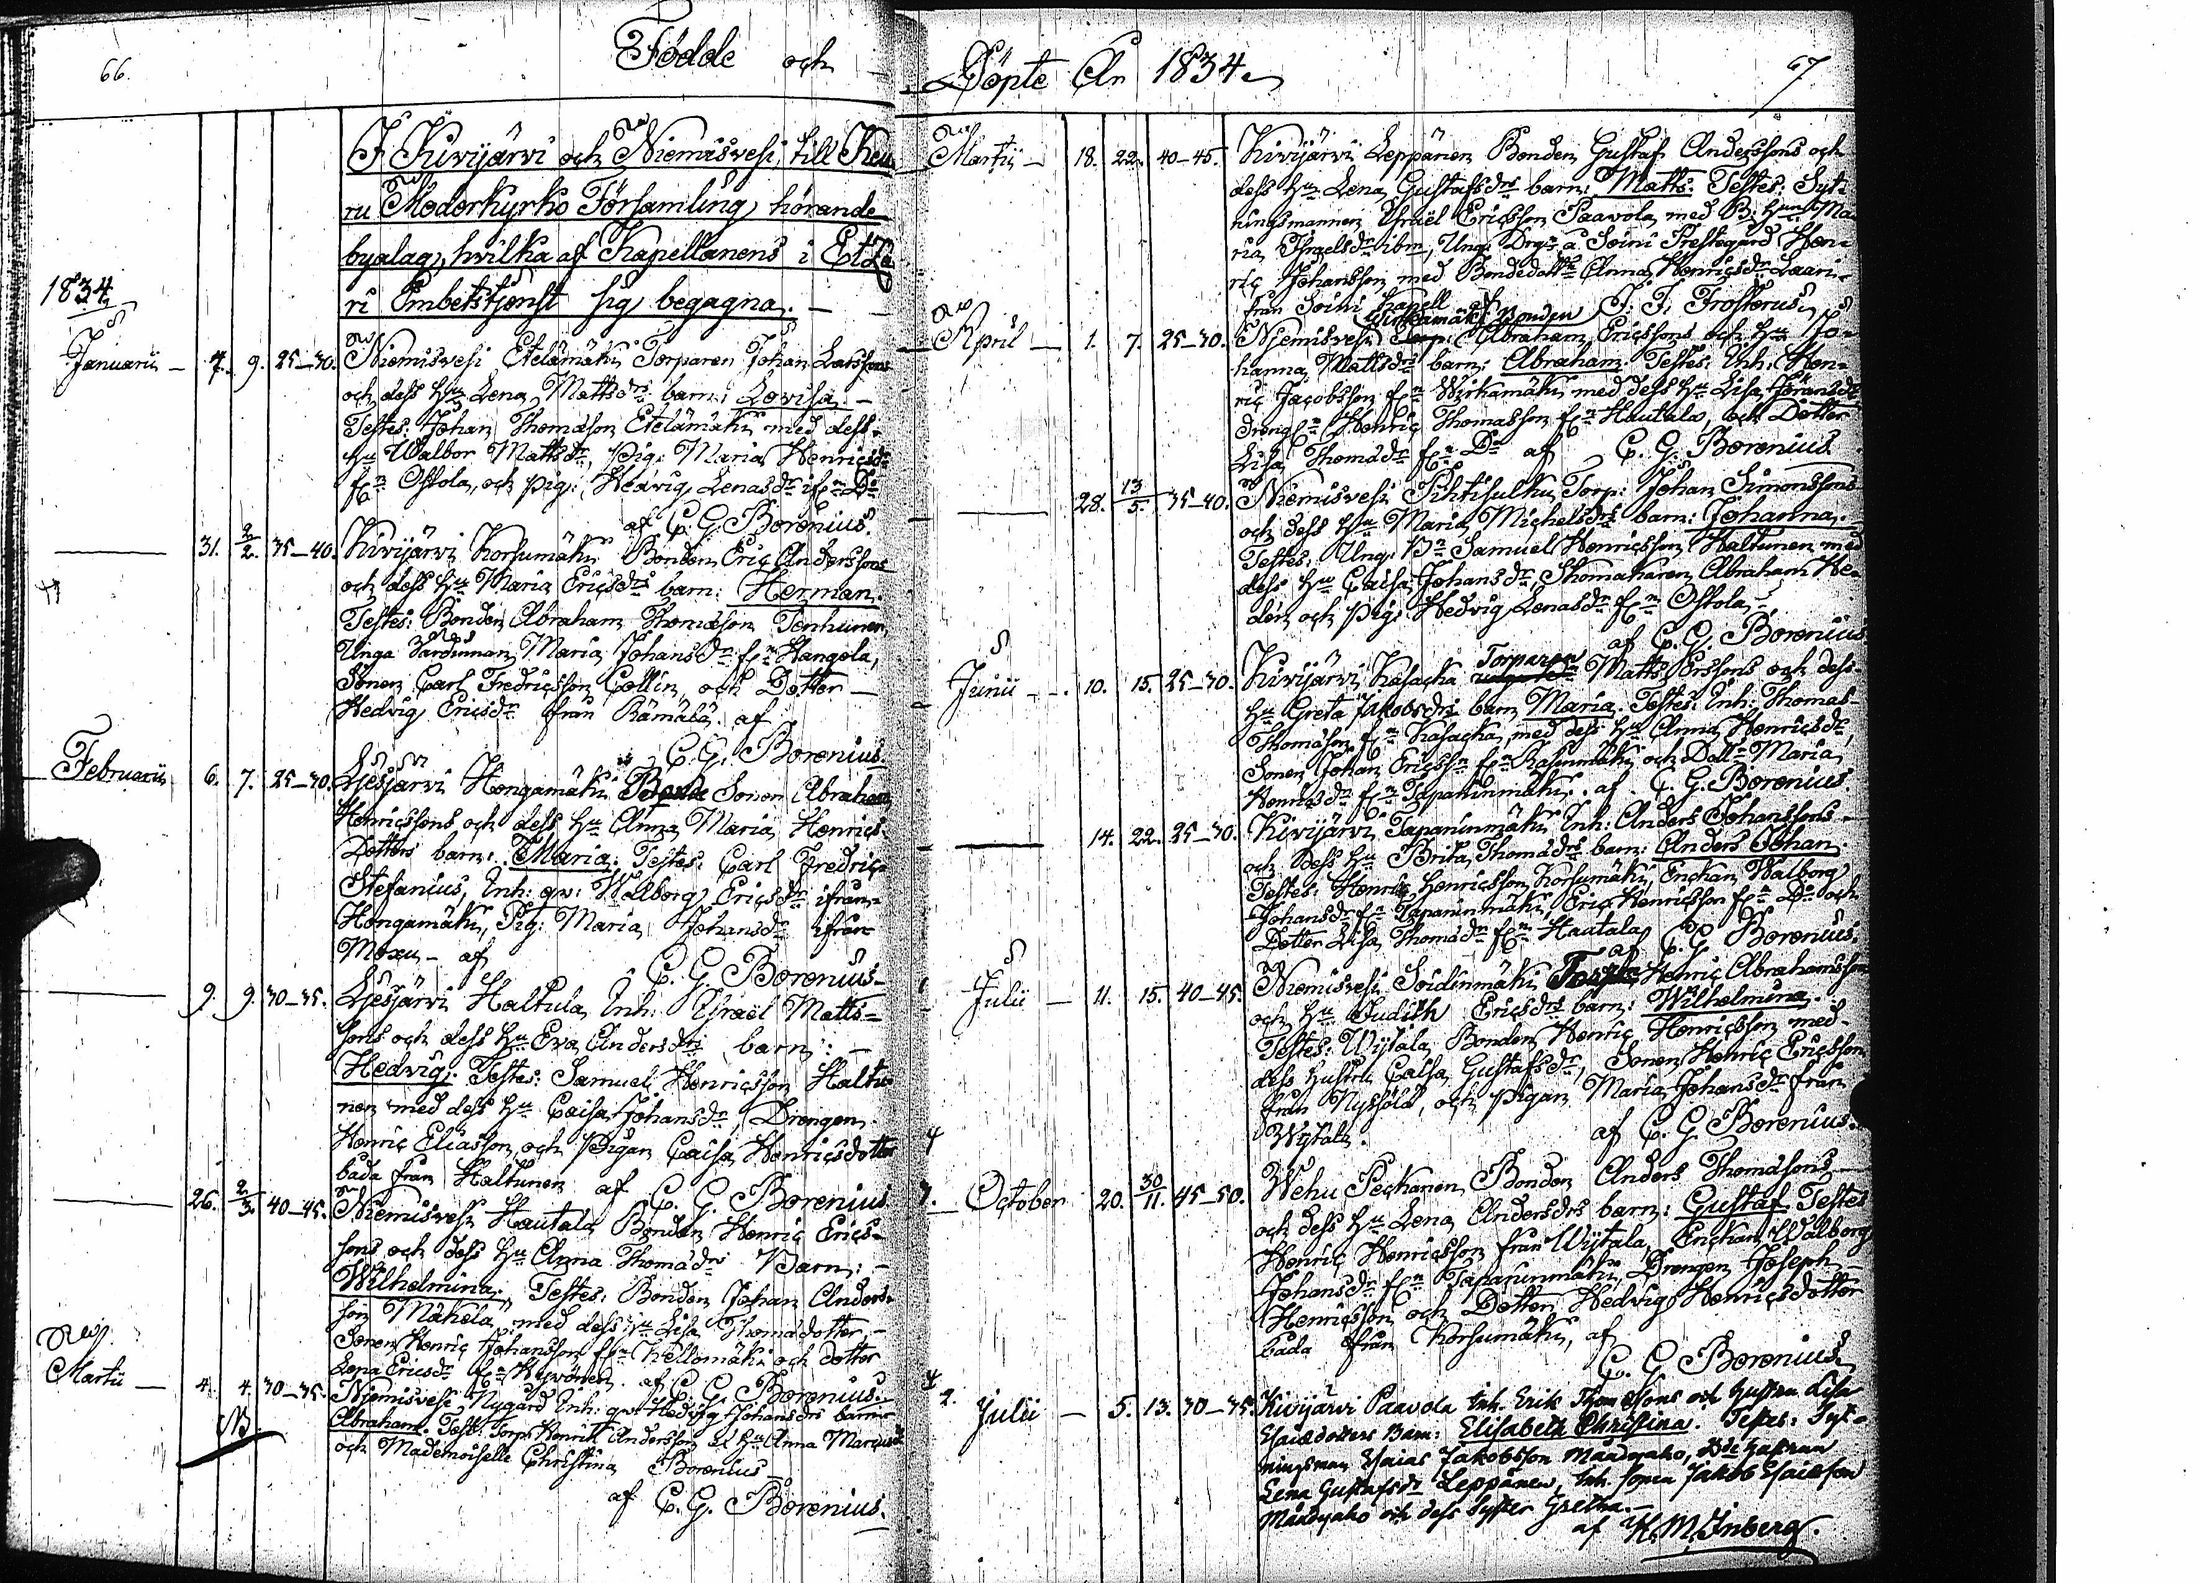 66.
Födde och
1834.
I Kivijärvi och Niemisvesi, till Keu-
ru Moderkyrko Församling hörande
byalag, hvilka af Kapellanens i Etze-
ri Embetstjenst sig begagna. —
Januarii — 7. 9. 25—30. Niemisvesi Etelämäki Torparen Johan Larssons
och dess Hu Lena Mattsdrs barn: Lovisa. —
Testes: Johan Thomasson Etelämäki med dess
Hu Walbor Mattsdr, Pig. Maria Henricsdr
frn Ostola, och pig: Hedvig Lenasdr ifrn Do
af C. G. Borenius.
31. 2/2. 35—40. Kivijärvi Korsumäki Bonden Eric Anderssons
och dess Hu Maria Ericsdrs barn: Herman.
Testes: Bonden Abraham Thomasson Tenhunen,
Unga Maria Johansdr frn Hangola,
Sonen Carl Fredricsson Collin, och Dotter —
Hedvig Ericsdr från Rämälä. af
C. G. Borenius.
Februarii 6. 7. 25—30. Liesjärvi Hongamäki Sonen Abraham
Henricssons och dess Hu Anna Maria Henrics
Dotters barn: Maria. Testes: Carl Fredric
Stefanius, Inh: qv: Walborg Ericsdr ifrån
Hongamäki, Pig: Maria Johansdr ifrån
Moxu — af
C. G. Borenius
9. 9. 30—35. Liesjärvi Haltula Inh: Israël Matts-
sons och dess Hu Eva Andersdrs barn: —
Hedvig. Testes: Samuel Henricsson Haltu-
nen med dess Hu Caisa Johansdr, Drengen
Henric Eliasson och Pigan Caisa Henricsdotter
båda från Haltunen af
C. G. Borenius
26. 2/3. 40—45. Niemisvesi Hautala Bonden Henric Erics-
sons och dess Hu Anna Thomädrs Barn: —
Wilhelmina. Testes: Bonden Johan Anders-
son Mäkelä med dess Hu Lisa Thomädotter,
Sonen Henric Johansson frn Kellomäki och dotter
Lena Ericsdr frn Hyvönen. af C. G. Borenius.
Martii — 4. 4. 30—35. Niemisvesi Nygård Inh: qv: Hedvig Johansdrs barn:
NB
Abraham. Test: Torp: Henrik Andersson och Hu Anna
och Mademoiselle Christina Borenius —
af C. G. Borenius.
Döpte År 1834.
67
Martii — 18. 22. 40—45. Kivijärvi Leppänen Bonden Gustaf Anderssons och
dess Hu Lena Gustafsdrs barn: Matts. Testes: Syt-
ningsmannen Israël Ericsson Paavola med B: Hun Ma-
ria Israelsdr ibm, Ung: Drgn å Soini Prestegård Hen-
ric Johansson med Bondedottr Anna Henricsdr Laari-
från Soini Kapell af J. F. Frosterus.
April — 1. 7. 25—30. Niemisvesi Wirkamäki Bonden Abraham Ericssons och Hu Jo-
hanna Mattsdrs barn: Abraham. Testes: Inh: Hen-
ric Jacobsson frn Wirkamäki med dess Hu Lisa Göransdr
drengen Henric Thomasson frn Hautala, och Dotter
Lisa Thomädr frn Do af C. G. Borenius.
28. 13/5. 35—40. Niemisvesi Pihtisulku Torp: Johan Simonssons
och dess Hu Maria Michelsdrs barn: Johanna.
Testes: Ung: Bn Samuel Henricsson Haltunen med
dess Hu Caisa Johansdr, Skomakaren Abraham He-
den och pig: Hedvig Lenasdr frn Ostola, —
af C. G. Borenius
Junii — 10. 15. 25—30. Kivijärvi Kasacka Torparen Matts Erssons och dess
Hu Greta Jakobsdrs barn Maria. Testes: Inh: Thomas
Thomasson frn Kasacka, med dess Hu Anna Henricsdr,
Sonen Johan Ericssn frn Kasinmäki och Dottn Maria
Henricsdr frn Tapaninmäki. af C. G. Borenius.
14. 22. 25—30. Kivijärvi Tapaninmäki Inh: Anders Johanssons —
och dess Hu Brita Thomädrs barn: Anders Johan.
Testes: Henric Henricsson Korsumäki, Enckan Walborg
Johansdr frn Tapaninmäki, Eric Henricsson frn Do och
Dotter Lisa Thomädr frn Hautala af C. G. Borenius.
Julii — 11. 15. 40—45. Niemisvesi Soidinmäki Henric Abrahamsson
och Hu Judith Ericsdrs barn: Wilhelmina.
Testes: Wijtala Bonden Henric Henricsson med
dess Hustru Caisa Gustafsdr, Sonen Henric Ericsson
från Nyssölä, och Pigan Maria Johansdr från
Wijtala. af C. G. Borenius.
October 20. 30/11. 45—50. Wehu Peckanen Bonden Anders Thomäsons —
och dess Hu Lena Andersdrs barn: Gustaf Testes
Henric Henricsson från Wijtala, Enckan Walborg
Johansdr frn Tapaninmäki, Drengen Joseph —
Henricsson och Dotter Hedvig Henricsdotter
båda från Korsumäki, af
C. G. Borenius
2. Julii — 5. 13. 30—35. Kivijärvi Paavola Inh. Erik Thomassons och Hustru Lisa
Esaiædotters Barn: Elisabeth Christina. Testes: Syt-
ningsman Esaias Jakobsson Måndyaho, Bde Hustrun
Lena Gustafsdr Leppänen, Inh. sonen Jakob Esaiæson
Måndyaho och dess Syster Gretha. —
af K. M. Inberg.